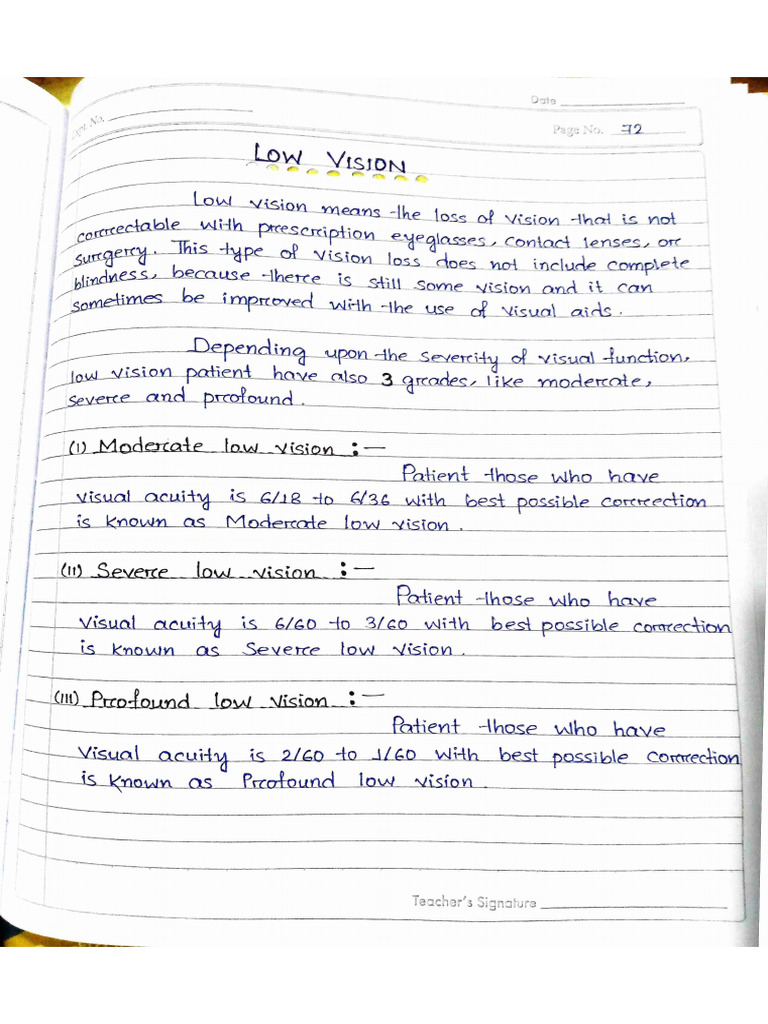 Date
Expt. No.
Page No. 72
LOW VISION
Low vision means the loss of vision that is not
correctable with prescription eyeglasses, contact lenses, or
surgery. This type of vision loss does not include complete
blindness, because there is still some vision and it can
sometimes be improved with the use of visual aids.
Depending upon the severity of visual function,
low vision patient have also 3 grades, like moderate,
severe and profound.
(I) Moderate low vision :-
Patient those who have
visual acuity is 6/18 to 6/36 with best possible correction
is known as Moderate low vision.
(II) Severe low vision :-
Patient those who have
visual acuity is 6/60 to 3/60 with best possible correction
is known as Severe low vision.
(III) Profound low vision :-
Patient those who have
visual acuity is 2/60 to 1/60 with best possible correction
is known as Profound low vision.
Teacher's Signature